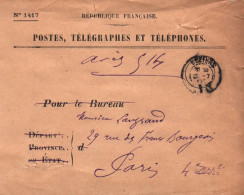 N° 1417
RÉPUBLIQUE FRANÇAISE.
POSTES, TÉLÉGRAPHES ET TÉLÉPHONES.
avis 514
Pour le Bureau
Monsieur
DÉPART
PROVINCE. d
ou ÉTAT.
29 rue des francs Bourgeois
Paris